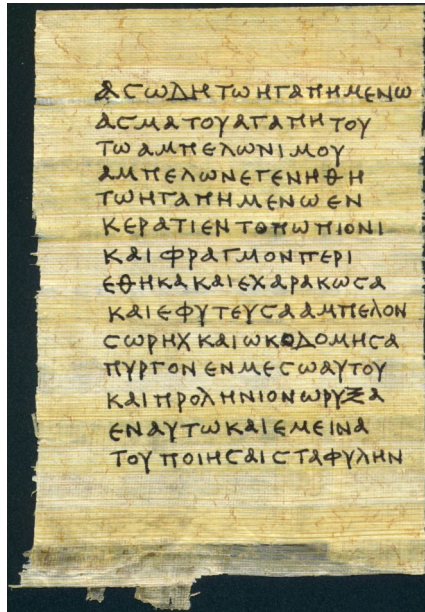 ΑϹΩΔΗΤΩΗΓΑΠΗΜΕΝΩ
ΑϹΜΑΤΟΥΑΓΑΠΗΤΟΥ
ΤΩΑΜΠΕΛΩΝΙΜΟΥ
ΑΜΠΕΛΩΝΕΓΕΝΗΘΗ
ΤΩΗΓΑΠΗΜΕΝΩΕΝ
ΚΕΡΑΤΙΕΝΤΟΠΩΠΙΟΝΙ
ΚΑΙΦΡΑΓΜΟΝΠΕΡΙ
ΕΘΗΚΑΚΑΙΕΧΑΡΑΚΩϹΑ
ΚΑΙΕΦΥΤΕΥϹΑΑΜΠΕΛΟΝ
ϹΩΡΗΧΚΑΙΩΚΟΔΟΜΗϹΑ
ΠΥΡΓΟΝΕΝΜΕϹΩΑΥΤΟΥ
ΚΑΙΠΡΟΛΗΝΙΟΝΩΡΥΞΑ
ΕΝΑΥΤΩΚΑΙΕΜΕΙΝΑ
ΤΟΥΠΟΙΗϹΑΙϹΤΑΦΥΛΗΝ